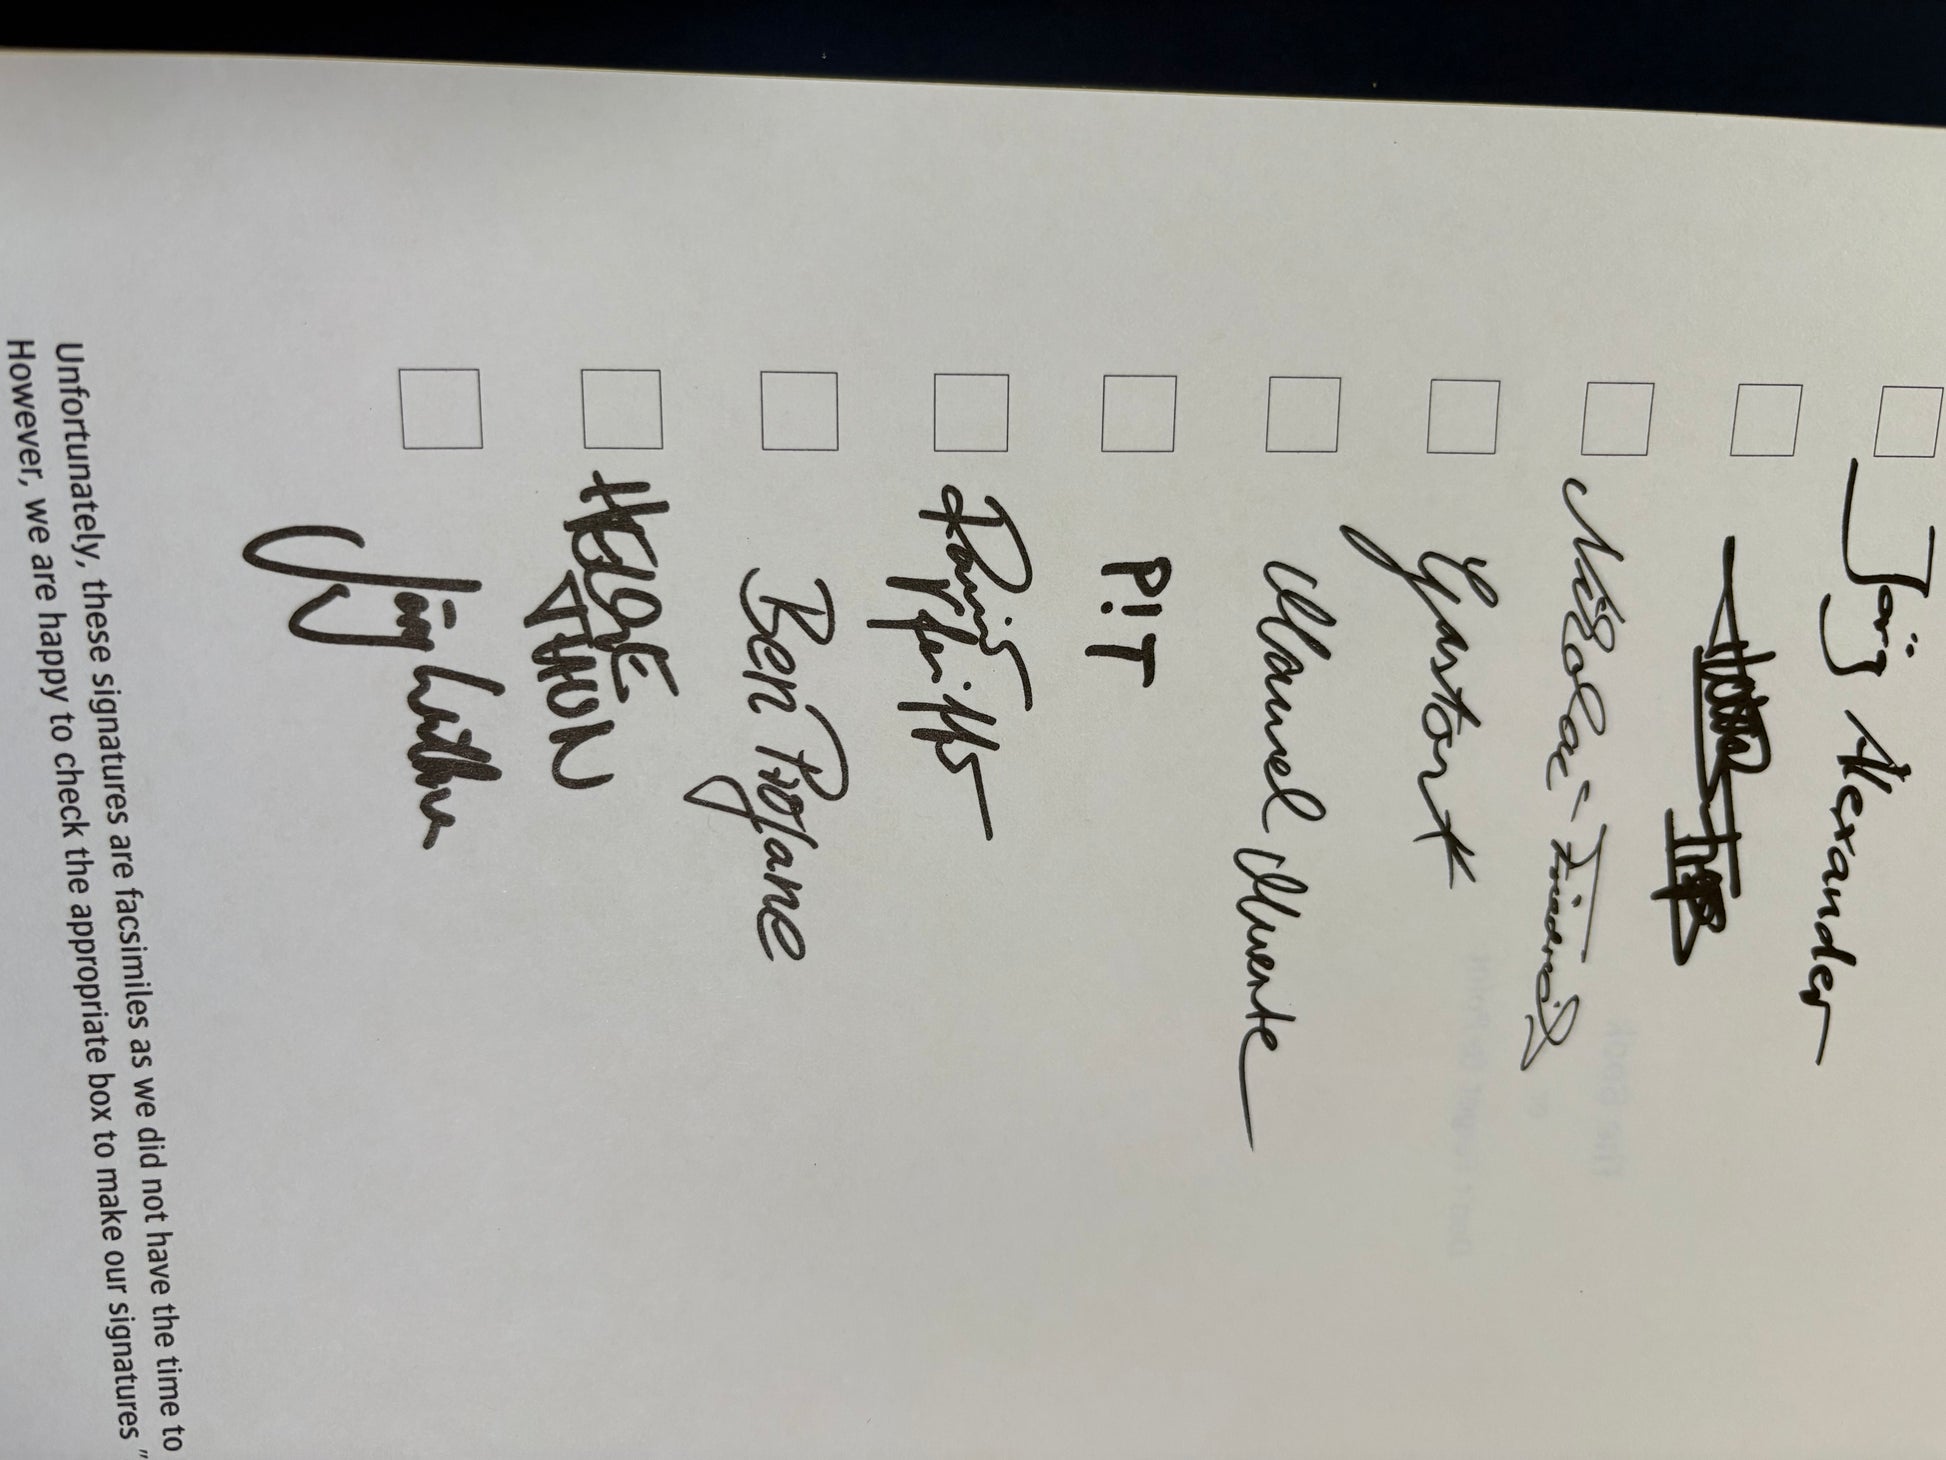 Jörg Alexander
Nikolai Friedrich
Gaston
Manuel Muerte
PIT
Ben Profane
HELGE
THUN
Jörg
Unfortunately, these signatures are facsimiles as we did not have the time to
However, we are happy to check the appropriate box to make our signatures "